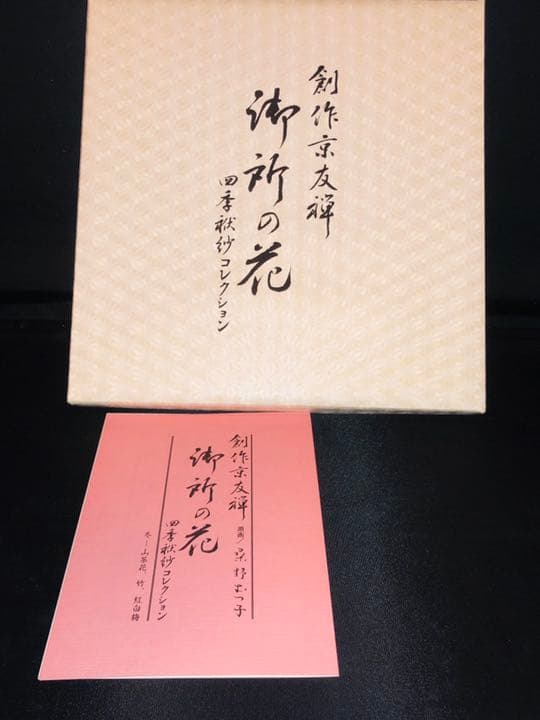 創作京友禅
御所の花
四季袱紗コレクション
創作京友禅
原画/
御所の花
四季袱紗コレクション
冬―山茶花、竹、紅白梅